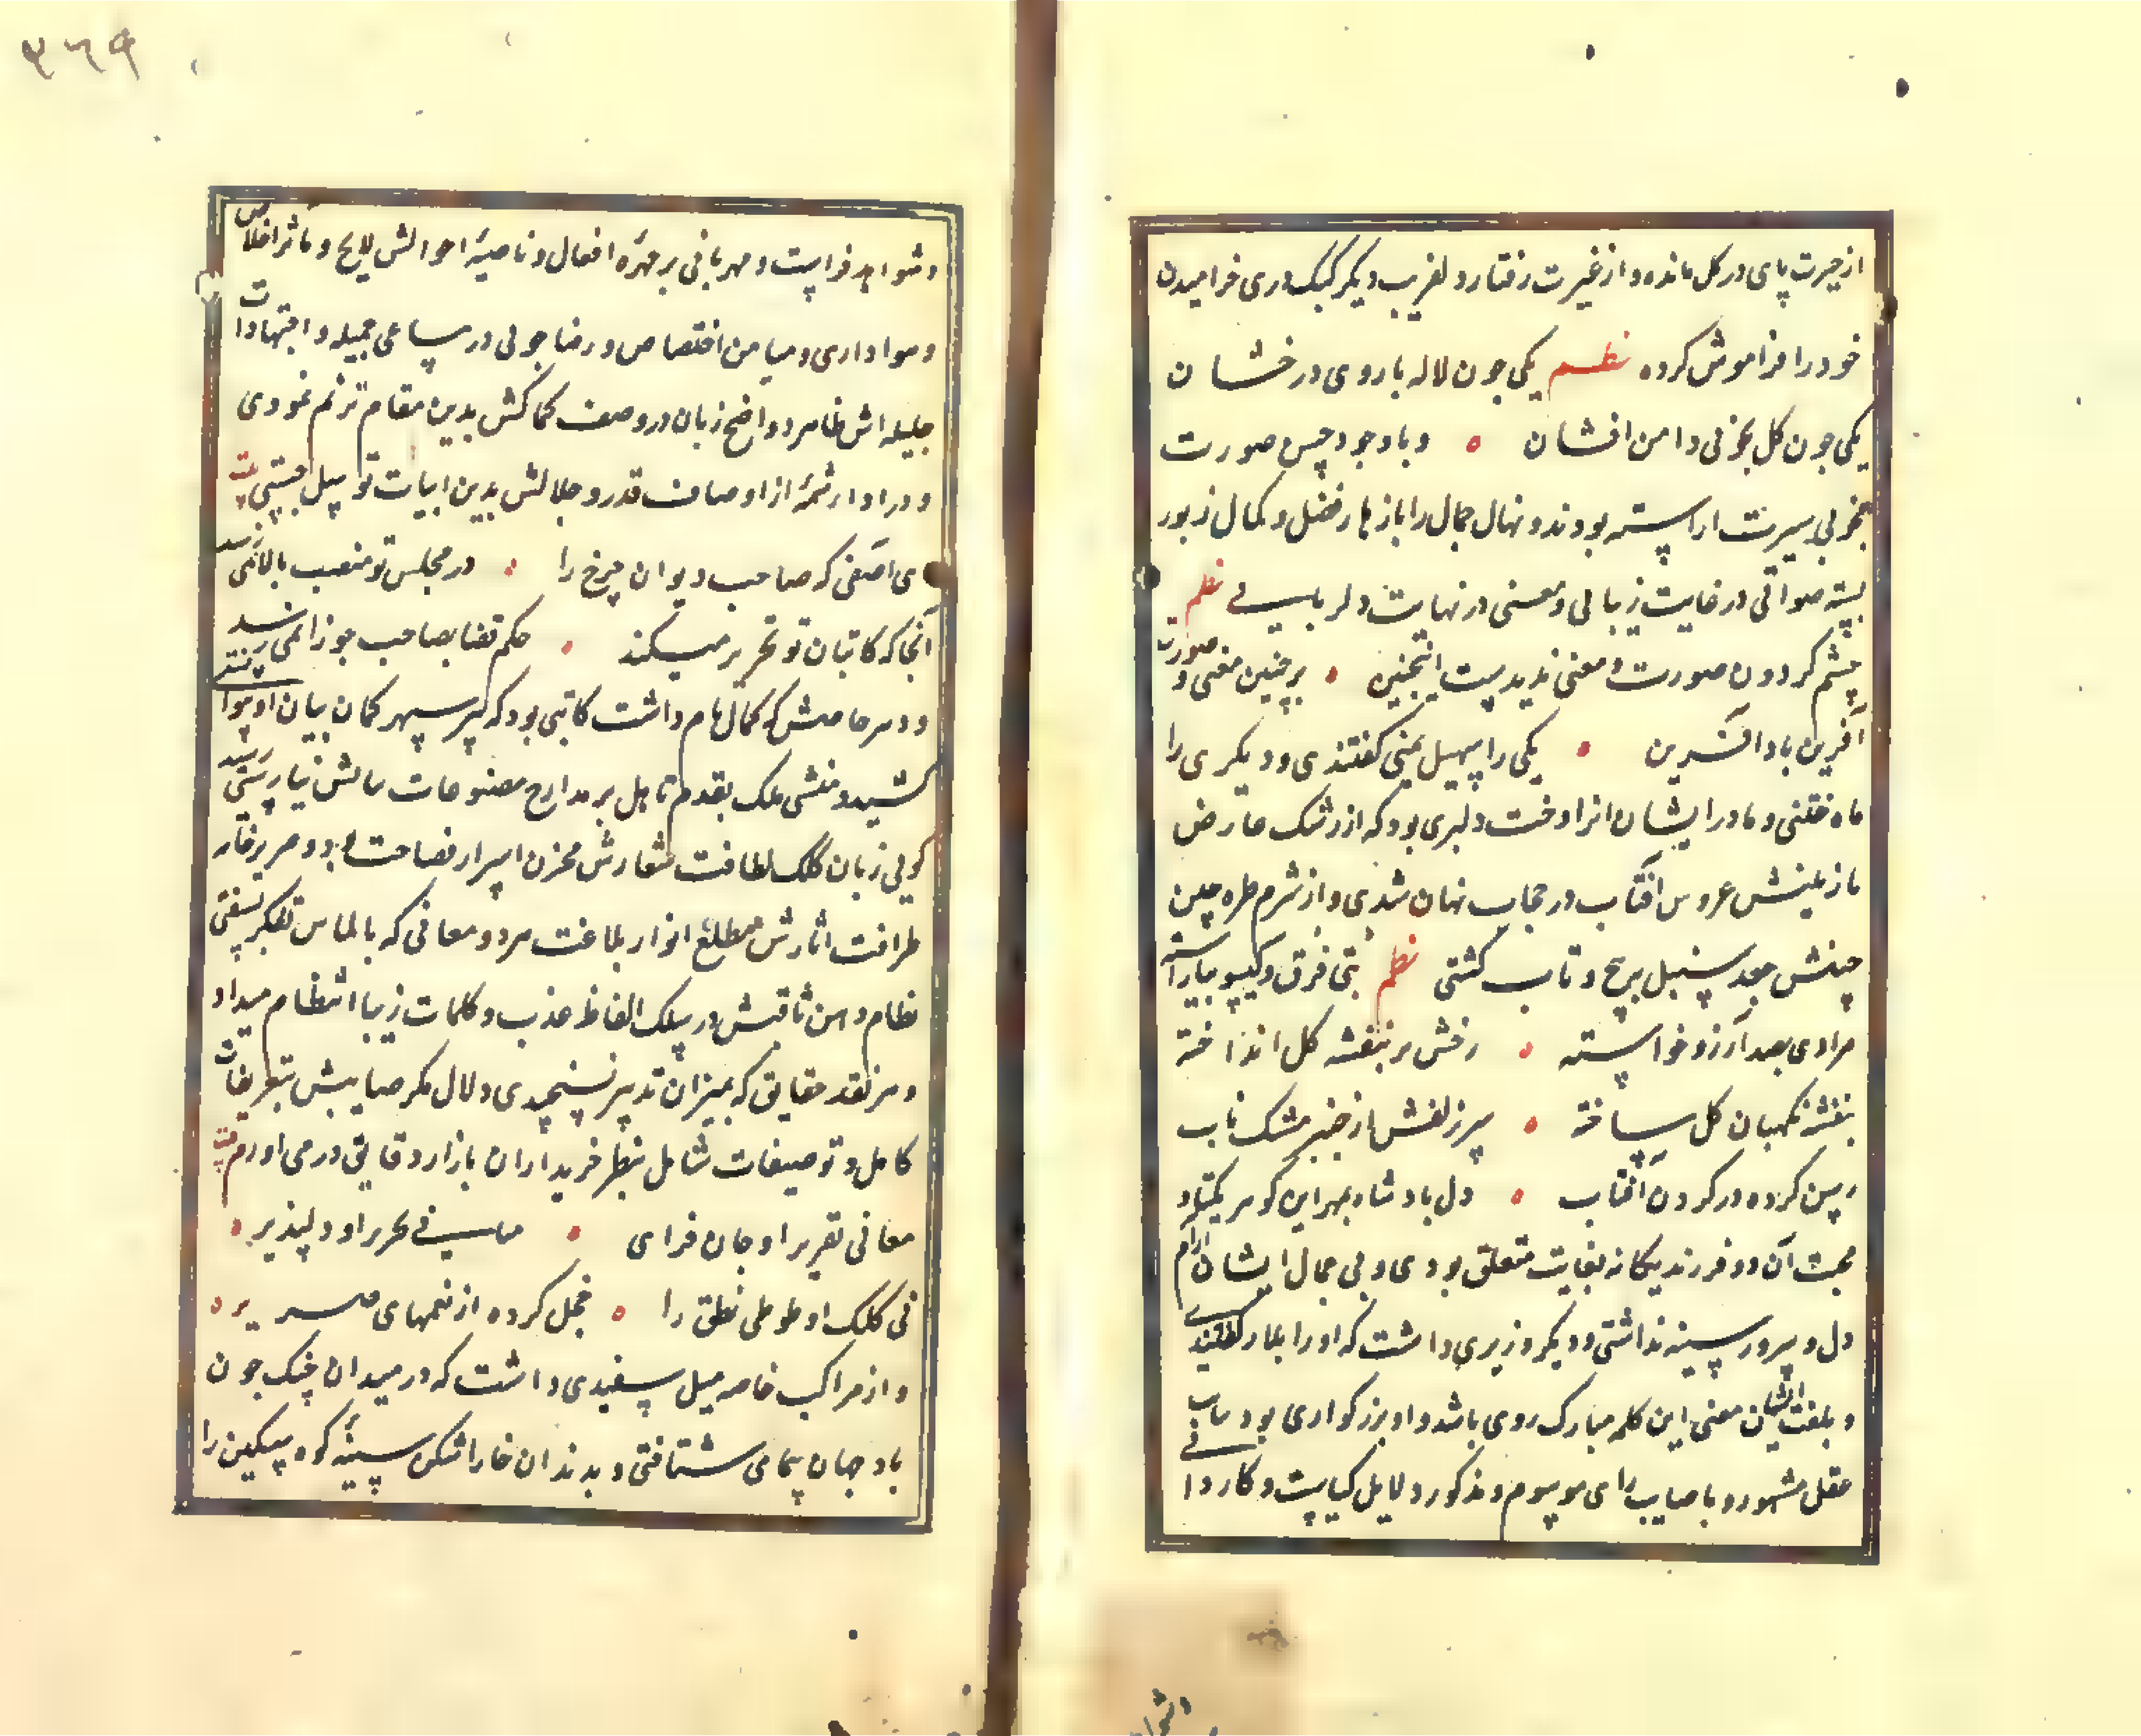 از حیرت پای در کل مانده و از غیرت رفتار دلفریب دیکر کبک دری خرامیدن
خود را فراموش کرده نظم یکی جون لاله با روی درخشان
یکی جون کل بخوبی دامن افشان ه و با وجود حسن صورت
بخوبی سیرت اراسته بودند و نهال جمال را بازهار فضل و کمال زیور
بسته صورتی در غایت زیبائی و معنی در نهایت دلربایی نظم
چشم کردون صورت و معنی ندیدست اینچنین ه بر چنین معنی و صورت
آفرین باد آفرین ه یکی را سهیل یمنی کفتندی و دیکری را
ماه ختنی و مادر ایشان ایران دخت دلبری بود که از رشک عارض
نازنینش عروس آفتاب در حجاب نهان شدی و از شرم طره چین
چینش جعد سنبل پرپیچ و تاب کشتی نظم بتی فرق و کیسو بیاراسته
مرادی بصد آرزو خواسته ه رخش بر بنفشه کل انداخته
بنفشه نکهبان کل ساخته ه سر زلفش از چنبر مشک ناب
رسن کرده در کردن آفتاب ه دل بادشاه بمهر این کوهر یکتا و
محبت آن دو فرزند یکانه بغایت متعلق بودی و بی جمال ایشان آرام
دل و سرور سینه نداشتی و دیکر وزیری داشت که او را بلار کفتندی
و بلغت ایشان معنی این کلمه مبارک روی باشد و او بزرکواری بود بمتانت
عقل مشهور و باصابت رای موسوم و مذکور دلایل کیاست و کاردا
و شواهد فراست و مهربانی بر چهره افعال و ناصیهٔ احوالش لایح و مآثر اخلاص
و هواداری و میامن اختصاص و رضاجوئی در مساعی جمیله و اجتهادات
جلیله اش ظاهر و واضح زبان در وصف کمالش بدین مقام ترنم نمودی
و در ادا رشحهٔ از اوصاف قدر و جلالش بدین ابیات توسل جستی بیت
ی آصفی که صاحب دیوان چرخ را ه در مجلس تو منصب بالا نمی رسد
آنجا که کاتبان تو تحریر میکنند ه حکم قضا بصاحب جوزا نمی رسد
و دبیر خاصش که کمال نام داشت کاتبی بود که تیر سپهر کمان بیان او نتوانستی
کشید و منشی فلک بقدم تامل بر مدارج مصنوعات مالش نیارستی رسید
کوئی زبان کلک لطافت شعارش مخزن اسرار فصاحت بود و صریر خامه
ظرافت آثارش مطلع انوار بلاغت هر در معانی که بالماس تفکر سفتی
نظام ذهن ثاقبش در سلک الفاظ عذب و کلمات زیبا انتظام میداد
و هر نقد حقایق که بمیزان تدبیر بسنجیدی دلال فکر صایبش بتعریفات
کامل و توصیفات شامل بنظر خریداران بازار دقایق در می اورد بیت
معانی تقریر او جان فزای ه مبانی تحریر او دلپذیر ه
نی کلک او طوطی نطق را ه خجل کرده از نغمهای صریر ه
و از مراکب خاصه پیل سفیدی داشت که در میدان جنک جون
باد جهان پیمای شتافتی و بدندان خارا شکن سینهٔ کوه سنکین را